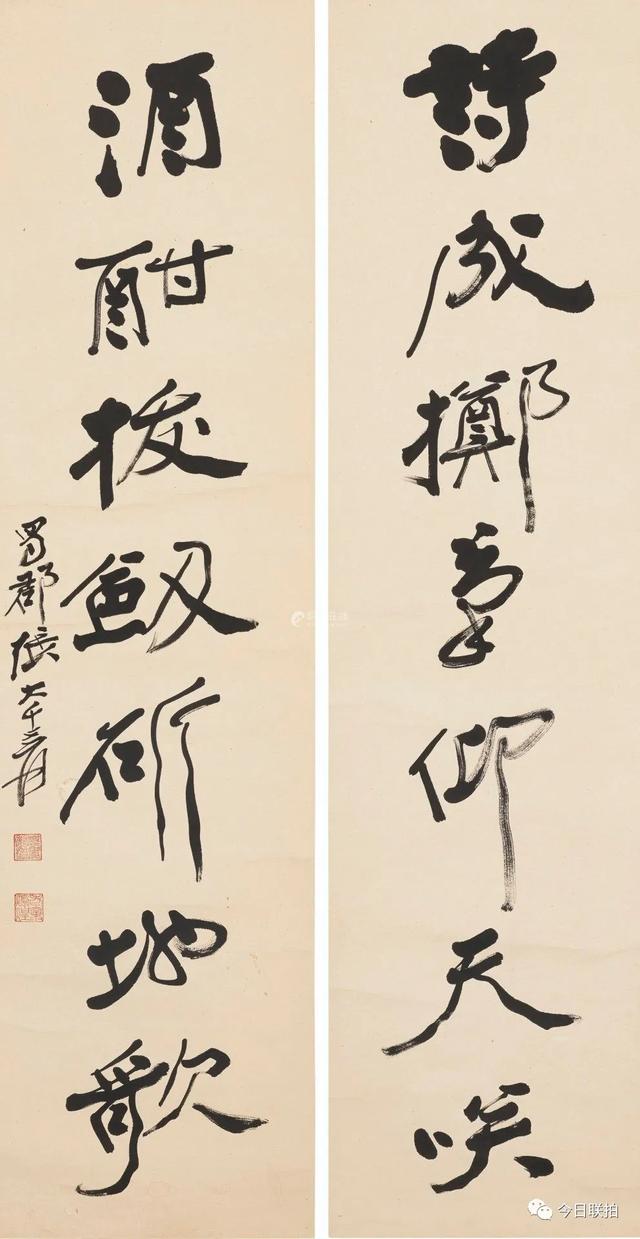 詩成擲筆仰天咲
酒酣拔劒斫地歌
蜀郡張大千爰
今日联拍